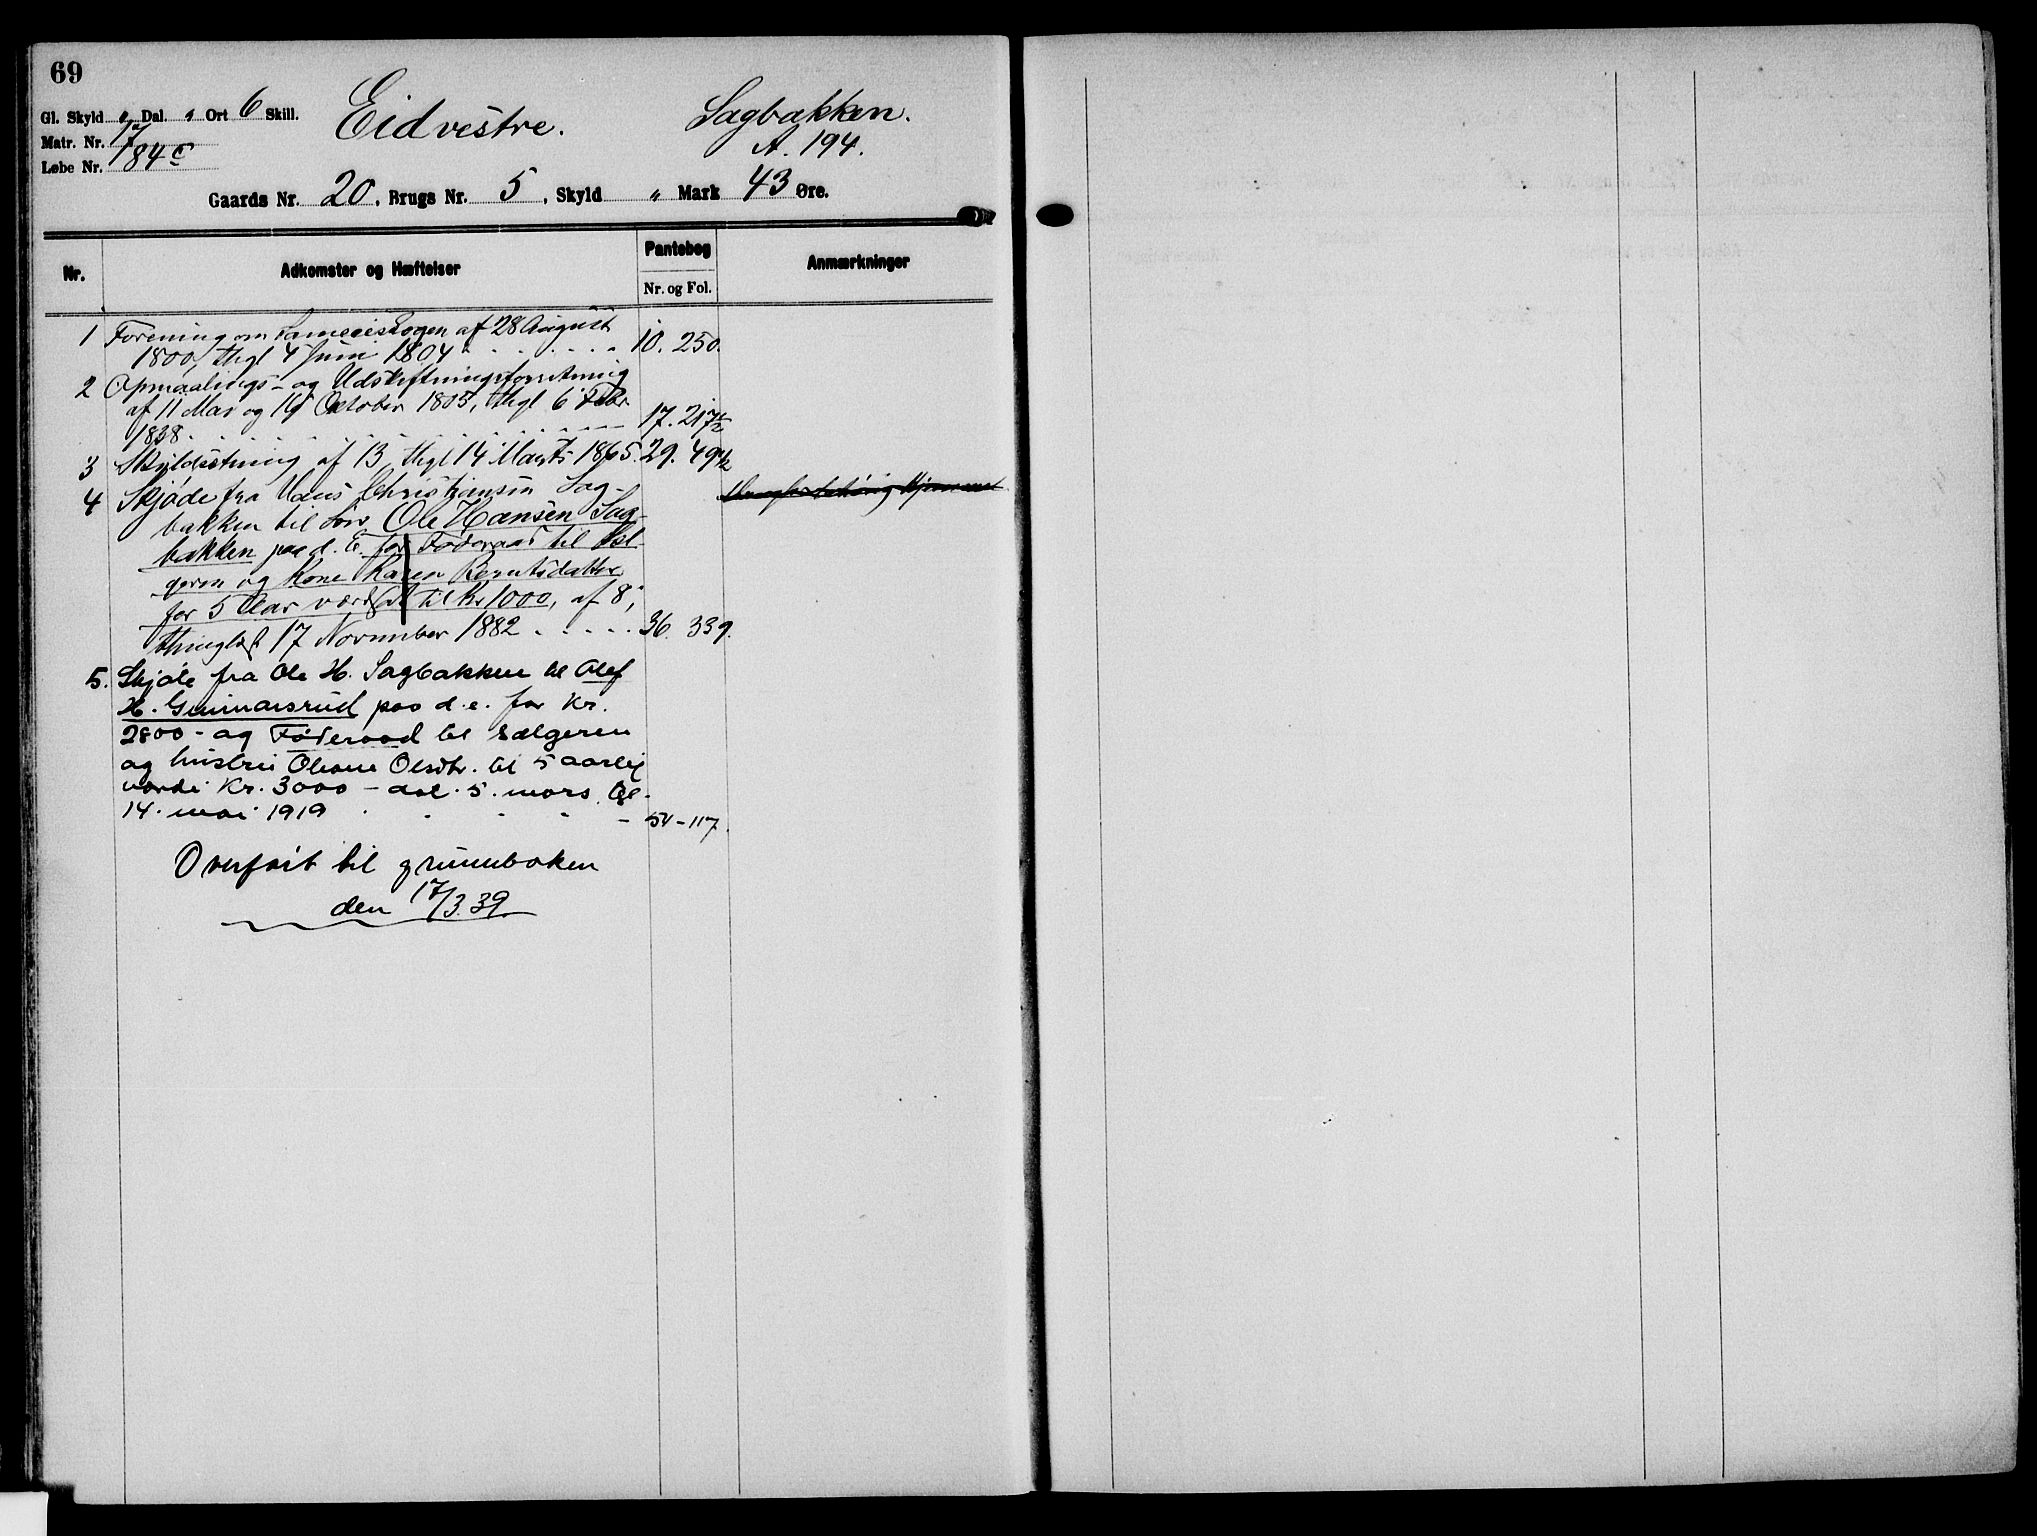 69
Gl. Skyld " Dal. " Ort 6 Skill.
Matr. Nr. 17
Løbe Nr. 184 c
Eid vestre.
Sagbakken.
A. 194.
Gaards Nr. 20, Brugs Nr. 5, Skyld " Mark 43 Øre.
Nr.
Adkomster og Hæftelser
Pantebog
Nr. og Fol.
Anmærkninger
1 Forening om Sameieskogen af 28 August
1800, thgl 4 Juni 1804 10. 250.
2 Opmaalings- og Udskiftningsforretning
af 11 Mai og 19 October 1805, thgl 6 Febr
1838 17. 217
3 Skyldsetning af 13, thgl 14 Marts 1865. 29. 49
4 Skjøde fra Hans Christiansen Sag-
bakken til Søn Ole Hansen Sag-
bakken paa d. E. for Føderaad til Sæl-
geren og Kone Karen Berntsdatter
for 5 Aar værdsat til Kr 1000, af 8,
thinglæst 17 November 1882 36. 339.
5. Skjøte fra Ole H. Sagbakken til Olef
H. Gunnarsrud paa d.e. for Kr.
2800 - og Føderaad til sælgeren
og hustru Oleane Olsdtr. til 5 aarlig
værdi Kr. 3000 - dat. 5. mars, tgl.
14. mai 1919 54 - 117.
Overført til grunnboken
den 17/3.39